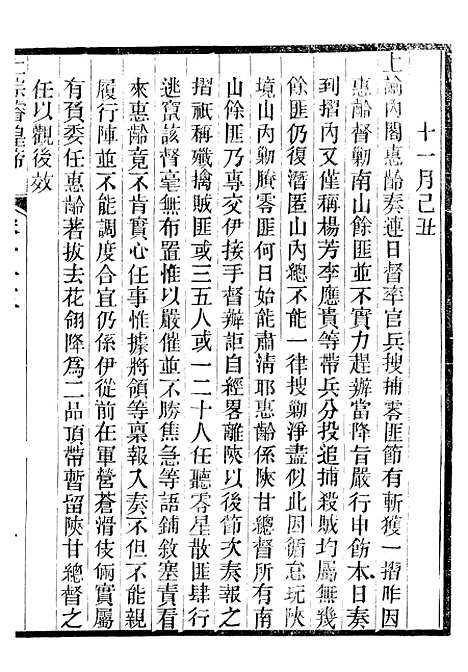 十一月己丑
上諭內閣惠齡奏連日督率官兵搜捕零匪節有斬獲一摺昨因
惠齡督勦南山餘匪並不實力趕辦當降旨嚴行申飭本日奏
到摺內又僅稱楊芳李應貴等帶兵分投追捕殺賊均屬無幾
餘匪仍復潛匿山內總不能一律搜勦淨盡似此因循怠玩陝
境山內勦賸零匪何日始能肅清耶惠齡係陝甘總督所有南
山餘匪乃專交伊接手督辦詎自經畧離陝以後節次奏報之
摺祇稱殲擒賊匪或三五人或一二十人任聽零星散匪肆行
逃竄該督毫無布置惟以嚴催並不勝焦急等語鋪敘塞責看
來惠齡竟不肯實心任事惟據將領等稟報入奏不但不能
履行陣並不能調度合宜仍係伊從前在軍營蒼滑伎倆實屬
有負委任惠齡著拔去花翎降為二品頂帶暫留陝甘總督之
任以觀後效
仁宗睿皇帝